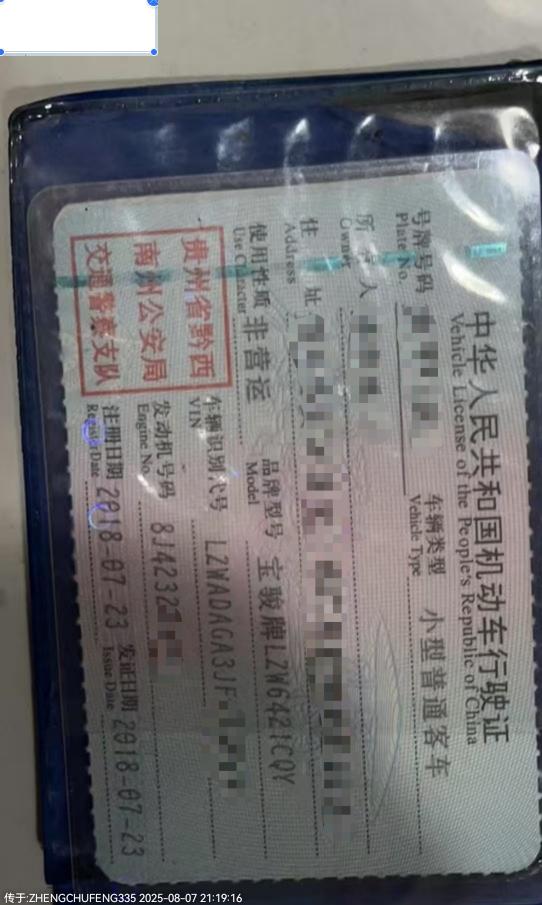 中华人民共和国机动车行驶证
Vehicle License of the People's Republic of China
号牌号码
Plate No.
车辆类型 小型普通客车
Vehicle Type
所有人
Owner
住址
Address
使用性质 非营运
Use Character
品牌型号 宝骏牌LZW6421CQY
Model
贵州省黔西
南州公安局
交通警察支队
车辆识别代号 LZWADAGA3JF
VIN
发动机号码 8J42322
Engine No.
注册日期 2018-07-23 发证日期 2018-07-23
Register Date Issue Date
传于:ZHENGCHUFENG335 2025-08-07 21:19:16